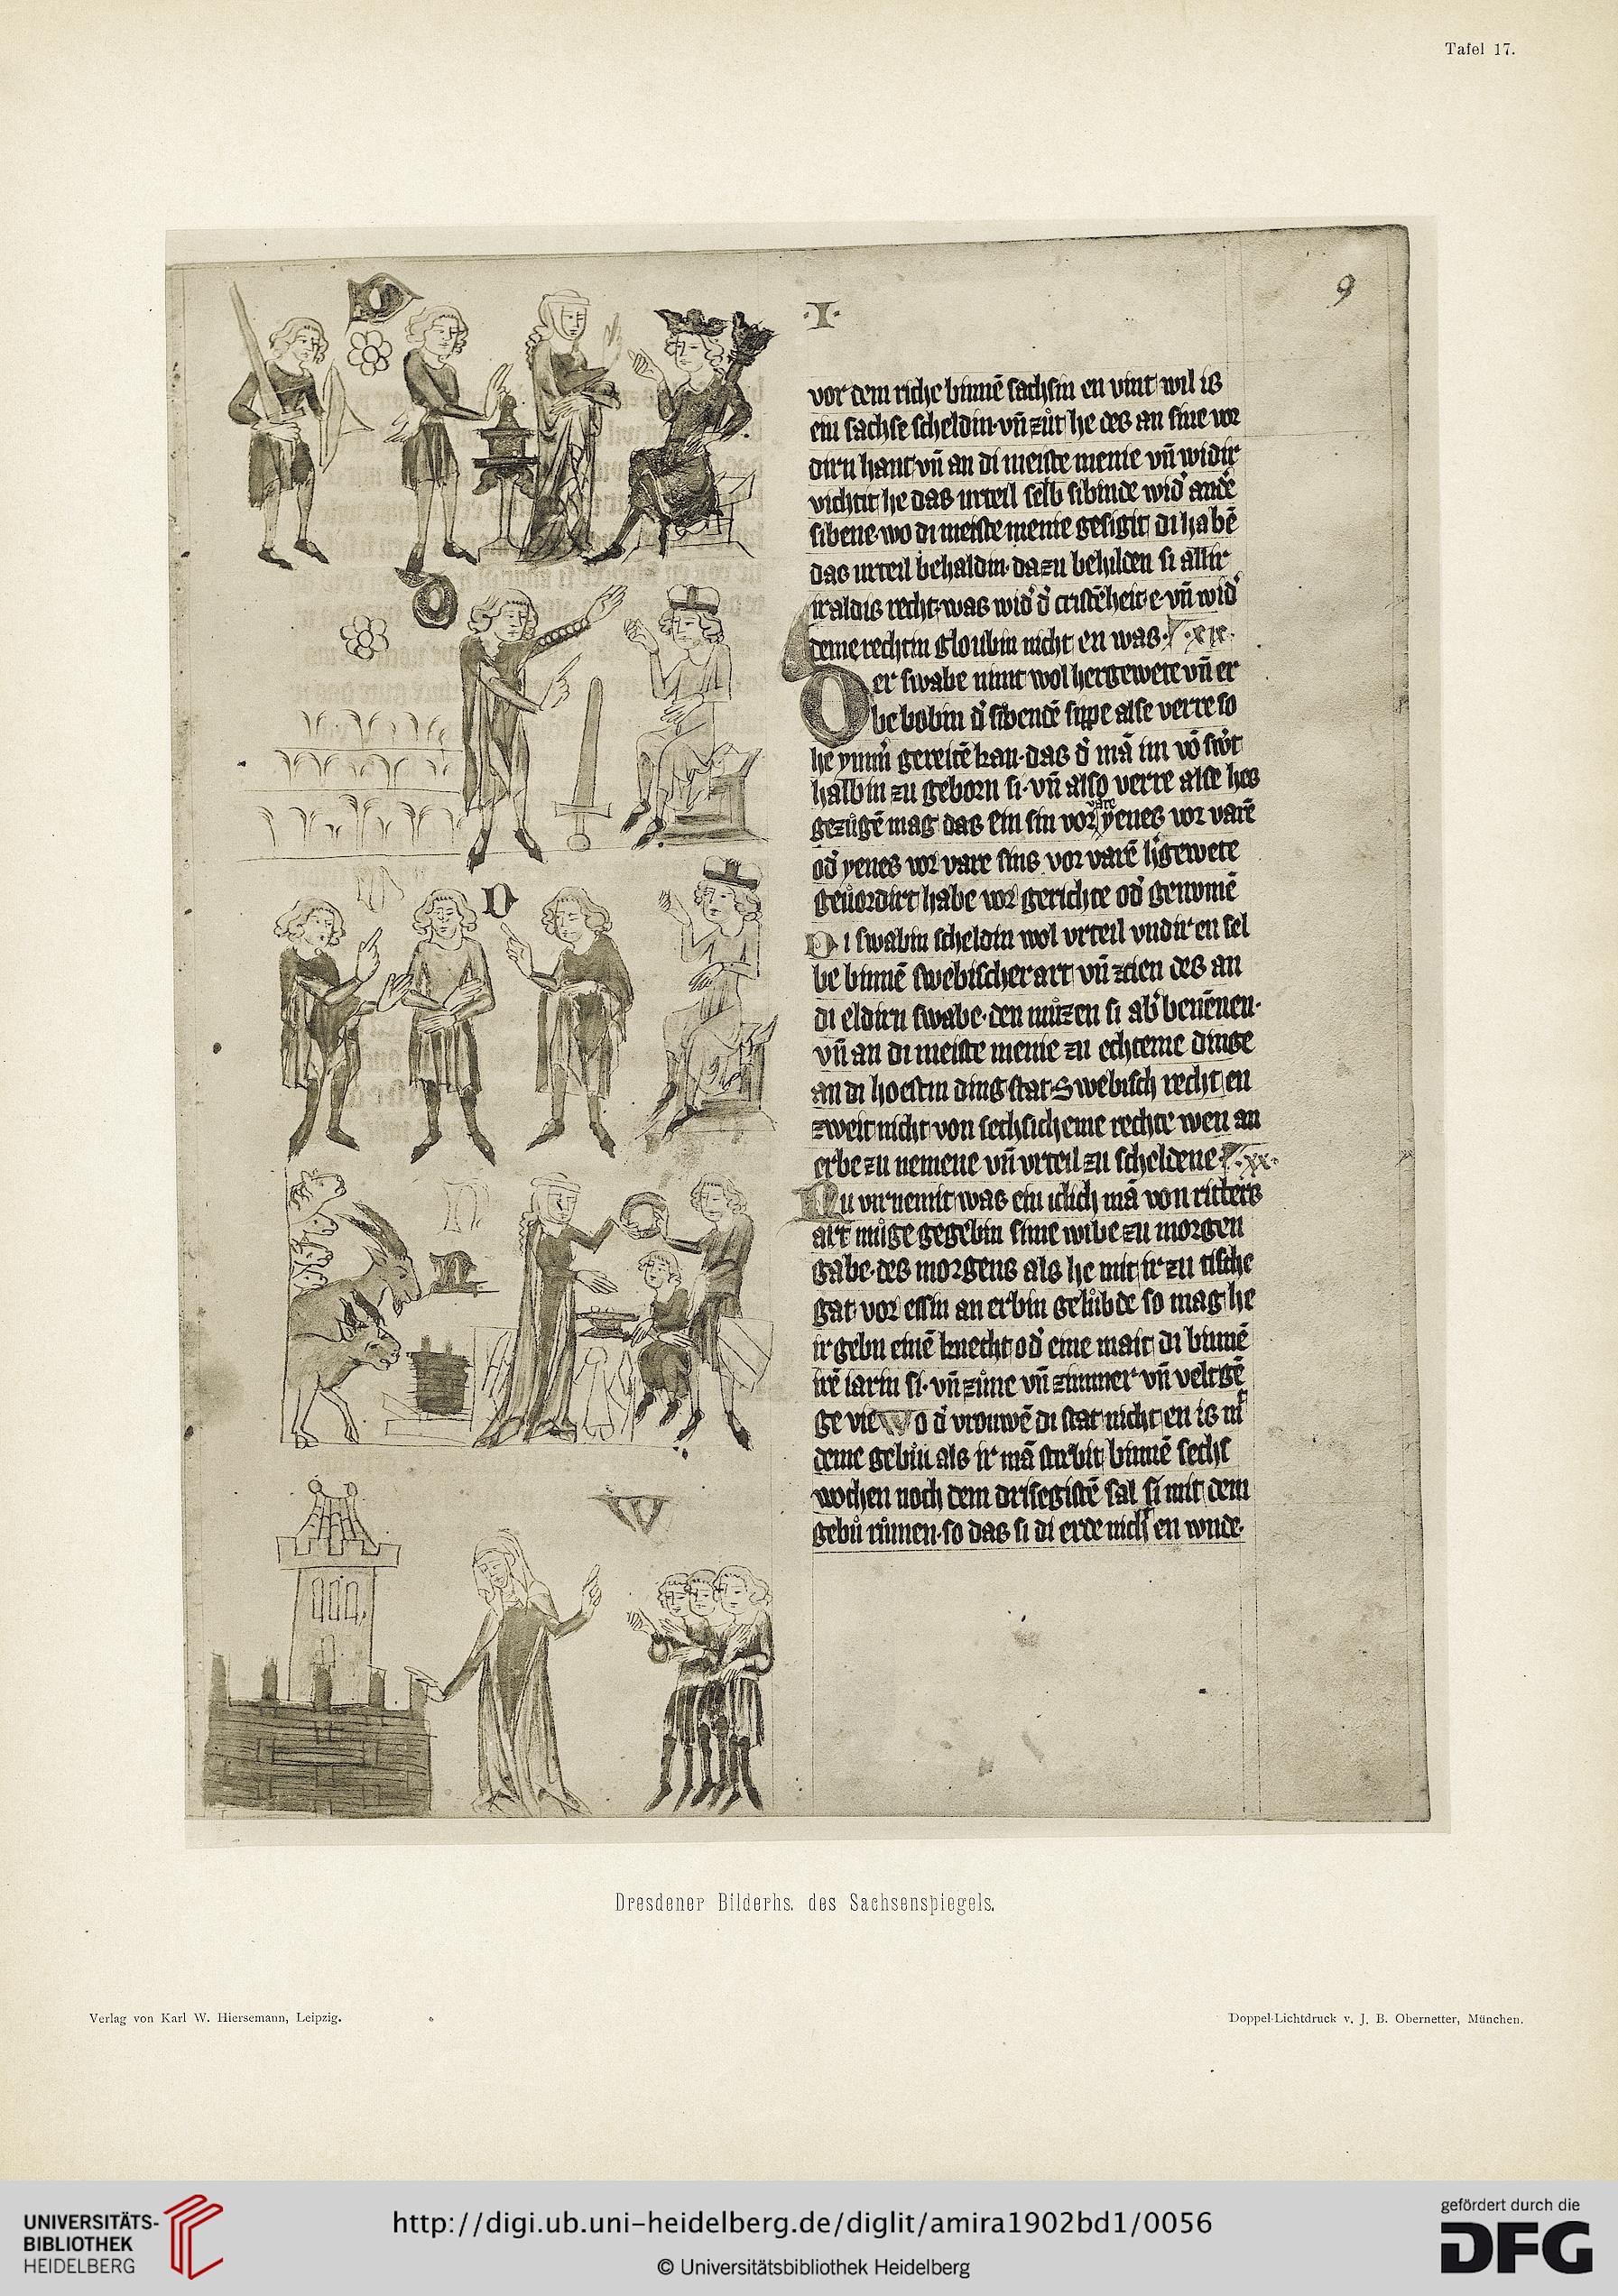 Tafel 17.
9
·I·
vor dem riche binnē sachsin en vint wil is
ein sachse scheldin· vn̄ zůt he des an sine vor
dirn hant vn̄ an di meiste menie vn̄ widir
vichtit he das urteil selb sibinde wid' ande'
sibene· wo di meiste menie gesigit di habē
das urteil behaldin· da zu behilden si allir
ir aldis recht· was wid' d' cristēheit e vn̄ wid'
deme rechtin gloubin nicht en was· xix·
Der swabe nimt wol hergewete vn̄ er
be bobin d' sibendē sippe alse verre so
he ymm' gereitē kan· das d' mā im vō swert
halbin zu geborn si· vn̄ also verre alse hes
gezůgē mag das ein sin vor vare yenes vor varē
od' yenes vor vare sins vor varē h'gewete
geuordirt habe vor gerichte od' genomē
Di swabin scheldin wol urteil undir en sel
be binnē swebischer art vn̄ zcien des an
di eldirn swabe· den můzen si ab' benēnen·
vn̄ an di meiste menie zu echteme dinge
an di hoestin ding stat· Swebisch recht en
zweit nicht von sechsicheme rechte wen an
erbe zu nemene vn̄ urteil zu scheldene· xx·
Nu vir nemit was ein iclich mā von ritters
art můge gegebin sime wibe zu morgen
gabe· des morgens als he mit ir zu tische
gat vor essin an erbin gelůbde so mag he
ir gebn einē knecht od' eine mait di binnē
irē iarin si· vn̄ zůne vn̄ zimmer vn̄ veltgē
ge vie Wo d' vrouwē di stat nicht en is mit
deme gebůu als ir mā stirbit binnē sechs
wochen noch dem drisegistē sal si mit dem
gebů růmen· so das si di erde nicht en wnde·
D
D
D
N
N
W
Dresdener Bilderhs. des Sachsenspiegels.
Verlag von Karl W. Hiersemann, Leipzig.
Doppel-Lichtdruck v. J. B. Obernetter, München.
UNIVERSITÄTS-
BIBLIOTHEK
HEIDELBERG
http://digi.ub.uni-heidelberg.de/diglit/amira1902bd1/0056
© Universitätsbibliothek Heidelberg
gefördert durch die
DFG